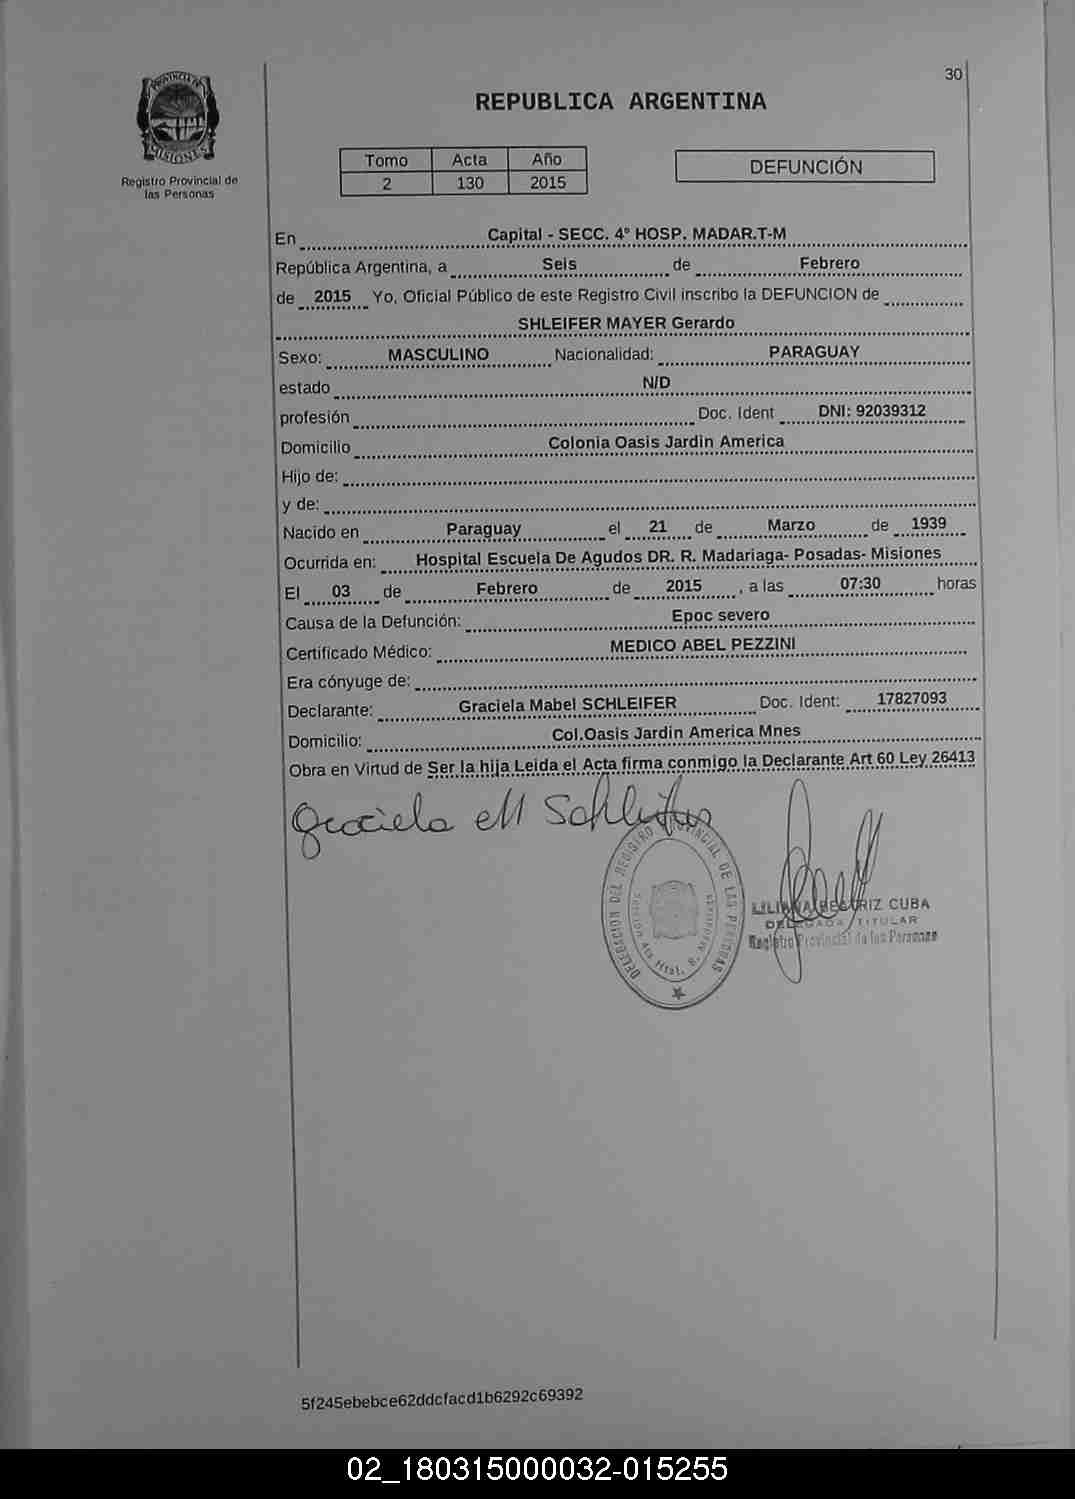 30
REPUBLICA ARGENTINA
PROVINCIA DE
MISIONES
Registro Provincial de
las Personas
Tomo Acta Año
2 130 2015
DEFUNCIÓN
En Capital - SECC. 4º HOSP. MADAR.T-M
República Argentina, a Seis de Febrero
de 2015 Yo, Oficial Público de este Registro Civil inscribo la DEFUNCION de
SHLEIFER MAYER Gerardo
Sexo: MASCULINO Nacionalidad: PARAGUAY
estado N/D
profesión Doc. Ident DNI: 92039312
Domicilio Colonia Oasis Jardin America
Hijo de:
y de:
Nacido en Paraguay el 21 de Marzo de 1939
Ocurrida en: Hospital Escuela De Agudos DR. R. Madariaga- Posadas- Misiones
El 03 de Febrero de 2015 , a las 07:30 horas
Causa de la Defunción: Epoc severo
Certificado Médico: MEDICO ABEL PEZZINI
Era cónyuge de:
Declarante: Graciela Mabel SCHLEIFER Doc. Ident: 17827093
Domicilio: Col.Oasis Jardin America Mnes
Obra en Virtud de Ser la hija Leida el Acta firma conmigo la Declarante Art 60 Ley 26413
Graciela M Schleifer
DELEGACION DEL REGISTRO PROVINCIAL DE LAS PERSONAS
LILIANA BEATRIZ CUBA
DELEGADA TITULAR
Registro Provincial de las Personas
5f245ebebce62ddcfacd1b6292c69392
02_180315000032-015255